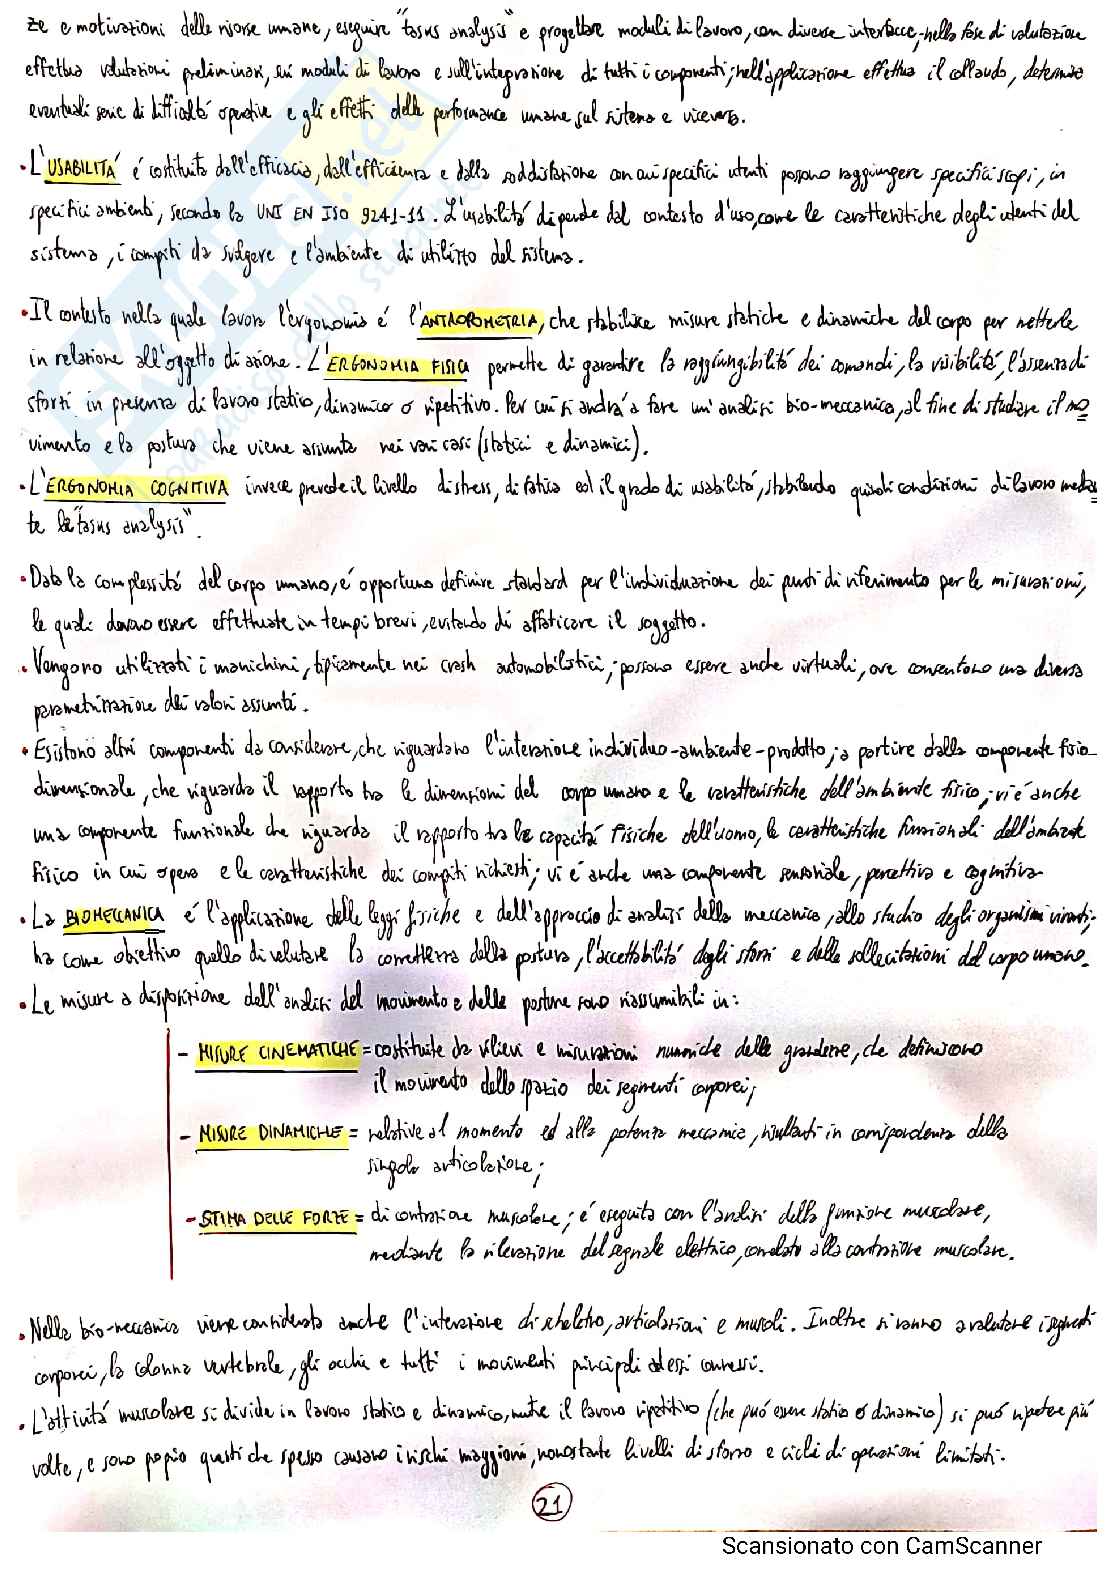 ze e motivazioni delle risorse umane, eseguire "tasks analysis" e progettare moduli di lavoro, con diverse interfacce; nella fase di valutazione
effettua valutazioni preliminari, sui moduli di lavoro e sull'integrazione di tutti i componenti; nell'applicazione effettua il collaudo, determina
eventuali serie di difficoltà operative e gli effetti delle performance umane sul sistema e viceversa.
• L'USABILITÀ é costituita dall'efficacia, dall'efficienza e dalla soddisfazione con cui specifici utenti possono raggiungere specifici scopi, in
specifici ambienti, secondo la UNI EN ISO 9241-11. L'usabilità dipende dal contesto d'uso, come le caratteristiche degli utenti del
sistema, i compiti da svolgere e l'ambiente di utilizzo del sistema.
• Il contesto nella quale lavora l'ergonomia é l'ANTROPOMETRIA, che stabilisce misure statiche e dinamiche del corpo per metterle
in relazione all'oggetto di azione. L'ERGONOMIA FISICA permette di garantire la raggiungibilità dei comandi, la visibilità, l'assenza di
sforzi in presenza di lavoro statico, dinamico o ripetitivo. Per cui si andrà a fare un'analisi bio-meccanica, al fine di studiare il mo
vimento e la postura che viene assunta nei vari casi (statici e dinamici).
• L'ERGONOMIA COGNITIVA invece prevede il livello di stress, di fatica ed il grado di usabilità, stabilendo quindi condizioni di lavoro median
te la "tasks analysis".
• Data la complessità del corpo umano, é opportuno definire standard per l'individuazione dei punti di riferimento per le misurazioni,
le quali devono essere effettuate in tempi brevi, evitando di affaticare il soggetto.
• Vengono utilizzati i manichini, tipicamente nei crash automobilistici; possono essere anche virtuali, ove consentono una diversa
parametrizzazione dei valori assunti.
• Esistono altri componenti da considerare, che riguardano l'interazione individuo-ambiente-prodotto; a partire dalla componente fisio-
dimensionale, che riguarda il rapporto tra le dimensioni del corpo umano e le caratteristiche dell'ambiente fisico; vi é anche
una componente funzionale che riguarda il rapporto tra le capacità fisiche dell'uomo, le caratteristiche funzionali dell'ambiente
fisico in cui opera e le caratteristiche dei compiti richiesti; vi é anche una componente sensoriale, percettiva e cognitiva
• La BIOMECCANICA é l'applicazione delle leggi fisiche e dell'approccio di analisi della meccanica, allo studio degli organismi viventi;
ha come obiettivo quello di valutare la correttezza della postura, l'accettabilità degli sforzi e delle sollecitazioni del corpo umano.
• Le misure a disposizione dell'analisi del movimento e delle posture sono riassumibili in:
- MISURE CINEMATICHE = costituite da rilievi e misurazioni numeriche delle grandezze, che definiscono
il movimento dello spazio dei segmenti corporei;
- MISURE DINAMICHE = relative al momento ed alla potenza meccanica, risultanti in corrispondenza della
singola articolazione;
- STIMA DELLE FORZE = di contrazione muscolare; é eseguita con l'analisi della funzione muscolare,
mediante la rilevazione del segnale elettrico, correlato alla contrazione muscolare.
• Nella bio-meccanica viene considerata anche l'interazione di scheletro, articolazioni e muscoli. Inoltre si vanno a valutare i segmenti
corporei, la colonna vertebrale, gli occhi e tutti i movimenti principali ad essi connessi.
• L'attività muscolare si divide in lavoro statico e dinamico, mentre il lavoro ripetitivo (che può essere statico o dinamico) si può ripetere più
volte, e sono proprio questi che spesso causano i rischi maggiori, nonostante livelli di sforzo e cicli di operazioni limitati.
21
Scansionato con CamScanner